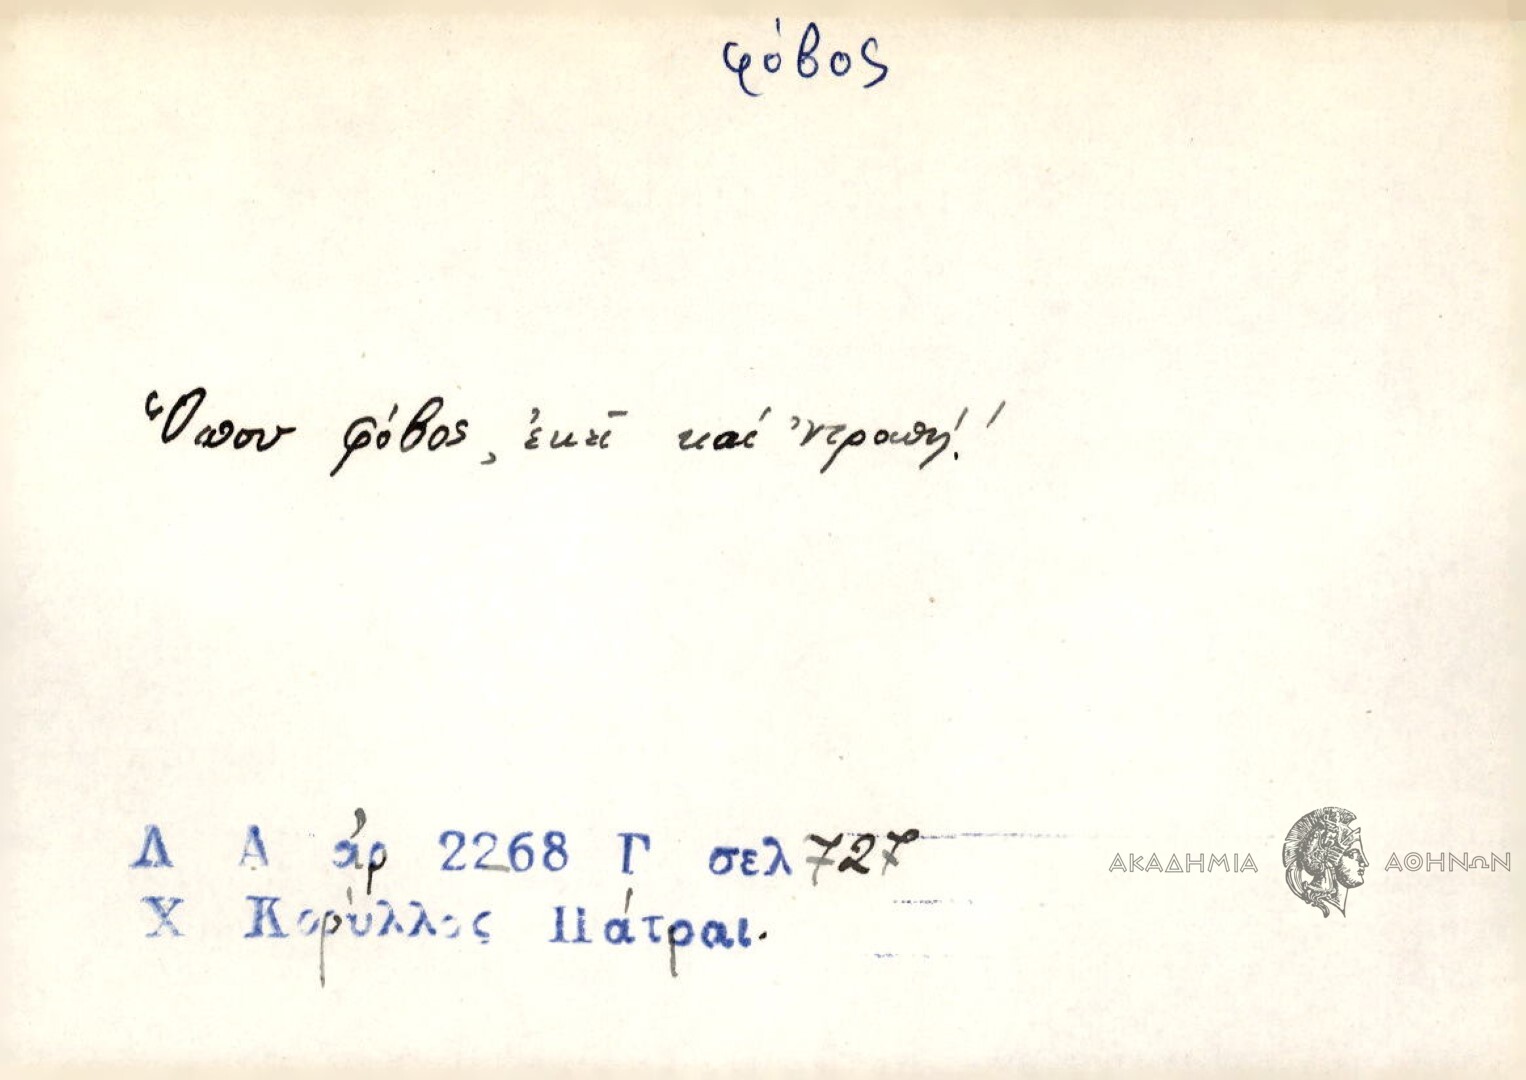 φόβος
Ὅπου φόβος, ἐκεῖ καί 'ντροπή!
Λ Α ἀρ 2268 Γ σελ 727
Χ Κορύλλος Πάτραι.
ΑΚΑΔΗΜΙΑ ΑΘΗΝΩΝ